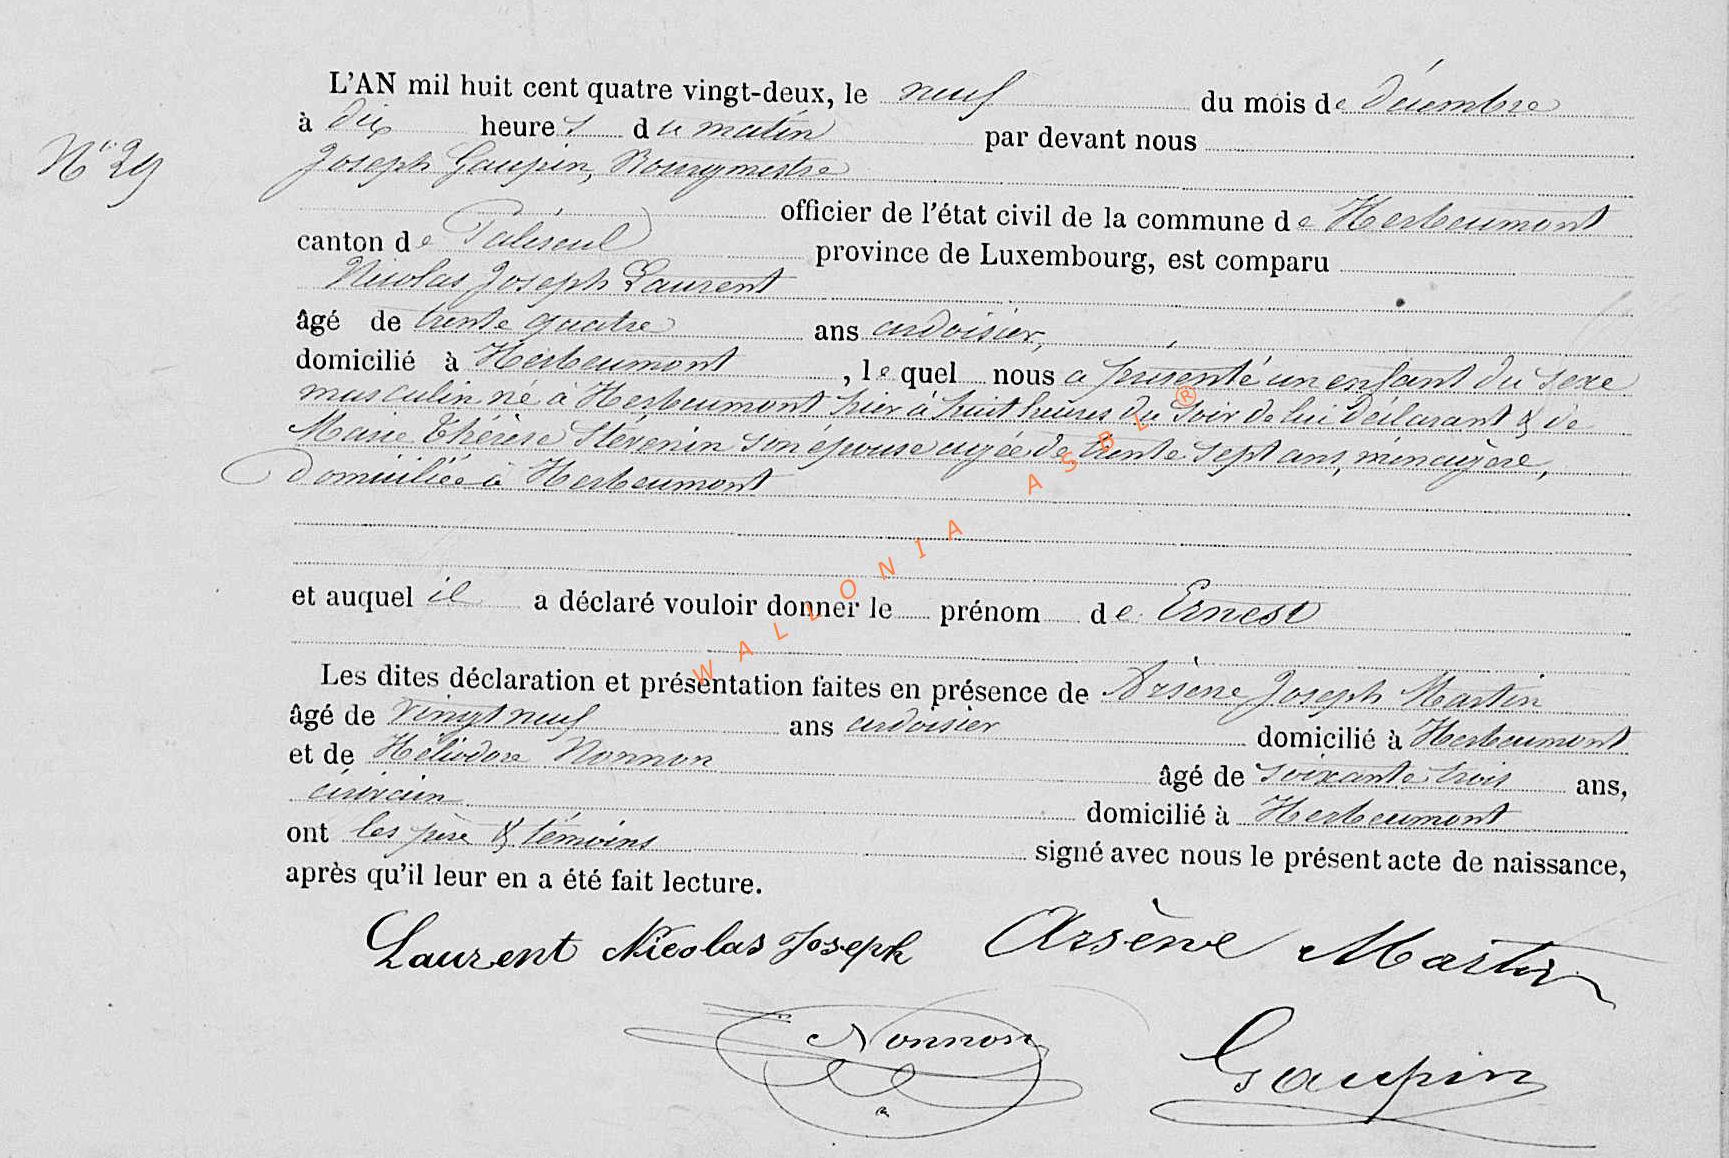 L'AN mil huit cent quatre vingt-deux, le neuf du mois de décembre
N° 29
à dix heures du matin par devant nous
Joseph Gaupin, Bourgmestre
officier de l'état civil de la commune de Herbeumont
canton de Paliseul province de Luxembourg, est comparu
Nicolas Joseph Laurent
âgé de trente quatre ans ardoisier,
domicilié à Herbeumont, lequel nous a présenté un enfant du sexe
masculin né à Herbeumont hier à huit heures du soir de lui déclarant & de
Marie Thérèse Stévenin son épouse agée de trente sept ans, ménagère,
domiciliée à Herbeumont
et auquel il a déclaré vouloir donner le prénom de Ernest
Les dites déclaration et présentation faites en présence de Arsène Joseph Martin
âgé de vingt neuf ans ardoisier domicilié à Herbeumont
et de Héliodore Nonnon âgé de soixante trois ans,
domicilié à Herbeumont
ont les père & témoins signé avec nous le présent acte de naissance,
après qu'il leur en a été fait lecture.
Laurent Nicolas Joseph Arsène Martin
Nonnon Gaupin
WALLONIA ASBL ®